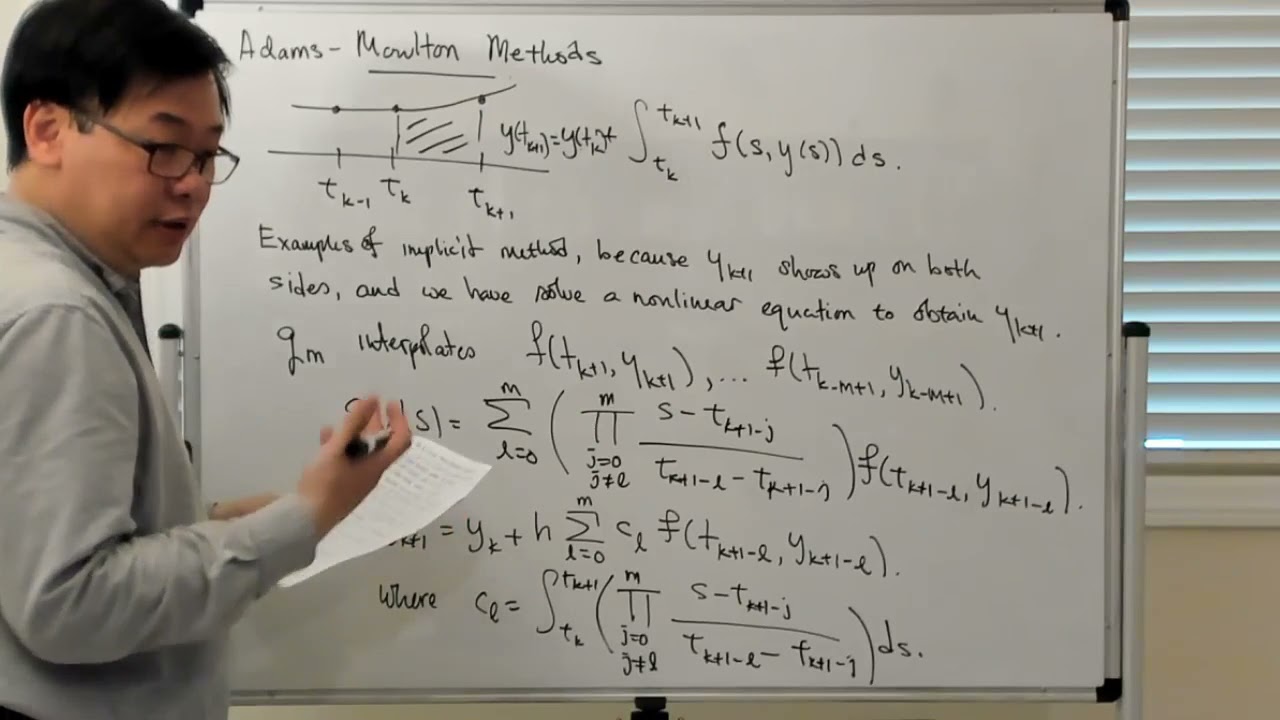 Adams-Moulton Methods
y(t_{k+1})=y(t_k)+ ∫_{t_k}^{t_{k+1}} f(s,y(s)) ds.
t_{k-1} t_k t_{k+1}
Examples of implicit method, because y_{k+1} shows up on both
sides, and we have solve a nonlinear equation to obtain y_{k+1}.
q_m interpolates f(t_{k+1}, y_{k+1}), ... f(t_{k-m+1}, y_{k-m+1}).
s) = ∑_{l=0}^{m} ( ∏_{j=0 j≠l}^{m} (s-t_{k+1-j})/(t_{k+1-l} - t_{k+1-j}) ) f(t_{k+1-l}, y_{k+1-l}).
k+1 = y_k + h ∑_{l=0}^{m} c_l f(t_{k+1-l}, y_{k+1-l}).
where c_l = ∫_{t_k}^{t_{k+1}} ( ∏_{j=0 j≠l}^{m} (s-t_{k+1-j})/(t_{k+1-l} - t_{k+1-j}) ) ds.